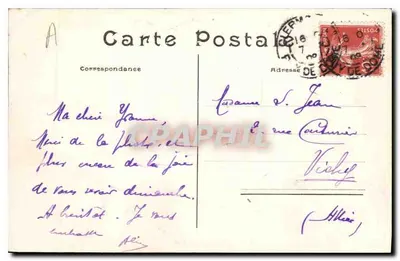 A
Carte Postale
Correspondance
Adresse
Ma chère Yvonne,
Merci de la photo, et
plus encore de la joie
de vous revoir dimanche.
A bientôt. Je vous
embrasse
Madame S. Jean
2, rue Couturier
Vichy
(Allier)
DE DOME